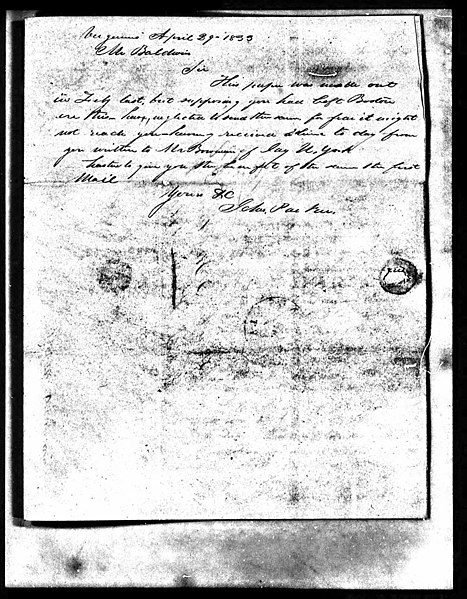 Vergennes April 29 - 1833
Mr Baldwin
Sir
This paper was made out
in Feby last, but supposing you had left Boston
ere this, neglected to send the same for fear it might
not reach you having received a line to day from
you written to Mr Bowman of N. York
hasten to give you the benefit of the same the first
Mail
Yours &C
John